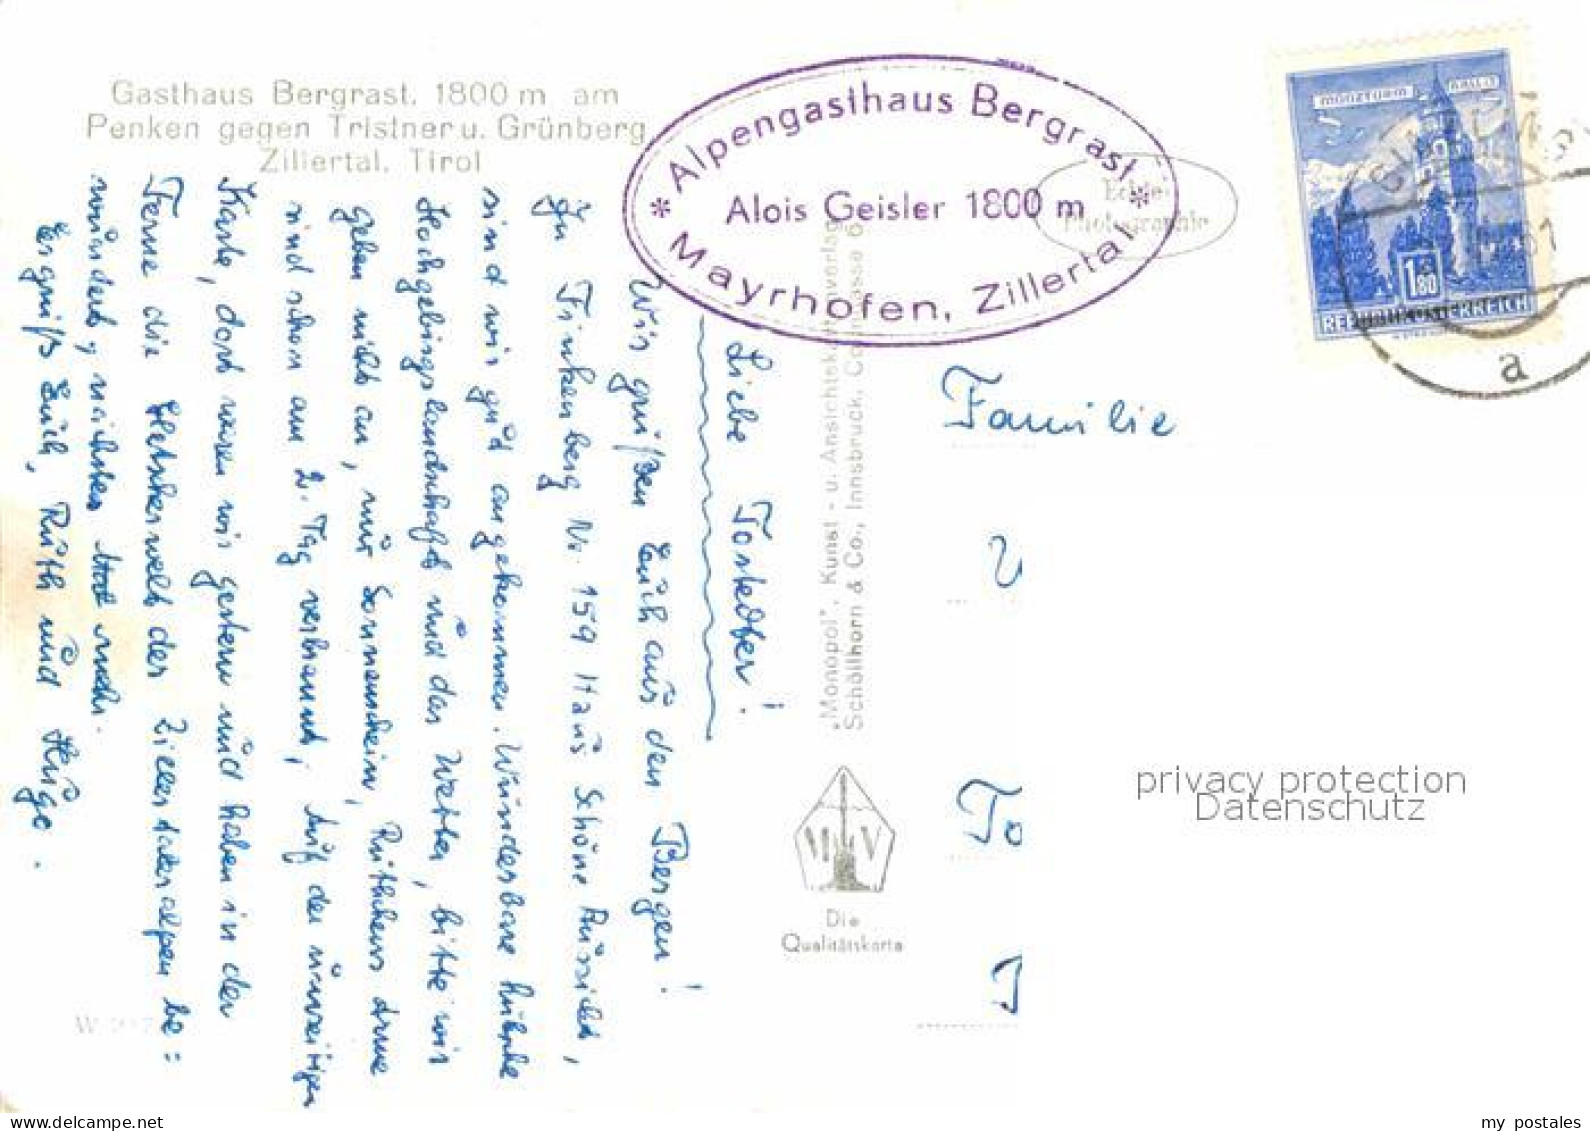 Gasthaus Bergrast, 1800 m am
Penken gegen Tristner u. Grünberg
Zillertal, Tirol
* Alpengasthaus Bergrast *
Alois Geisler 1800 m
Mayrhofen, Zillertal
Echte
Photographie
MÜNZTURM HALL
1.80
REPUBLIK ÖSTERREICH
a
Liebe Tostedter!
Wir grüßen Euch aus den Bergen!
In Finkenberg Nr. 159 Haus Schöne Aussicht,
sind wir gut angekommen. Wunderbare hübsche
Hochgebirgslandschaft und das Wetter, bitte wir
geben nicht an, nur Sonnenschein, Ruthchens Arme
sind schon am 2. Tag verbrannt, Auf der umseitigen
Karte, dort waren wir gestern und haben in der
Ferne die Gletscherwelt der Zillertaleralpen be=
wundert, nächstes Mal mehr.
Es grüßt Euch, Ruth und Hugo.
„Monopol", Kunst- u. Ansichtskartenverlag
Schöllhorn & Co., Innsbruck,
Die
Qualitätskarte
Familie
To
privacy protection
Datenschutz
my postales